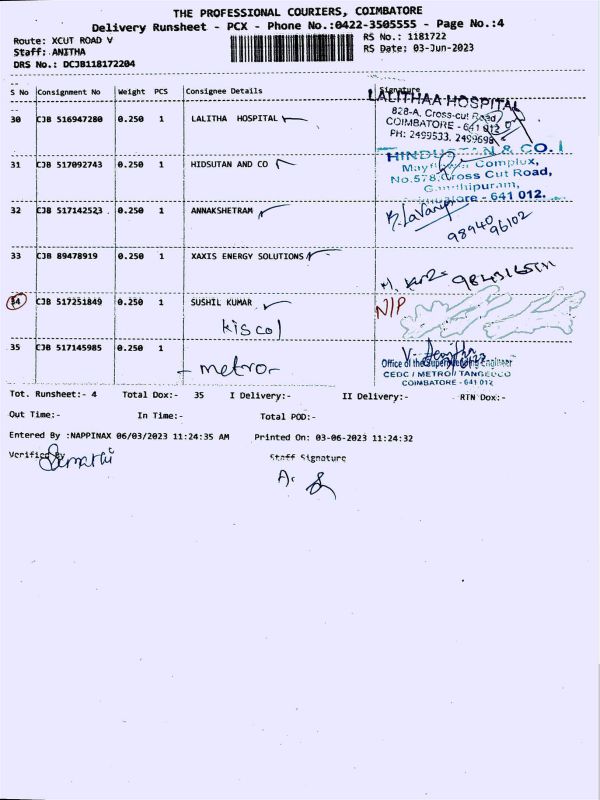 THE PROFESSIONAL COURIERS, COIMBATORE
Delivery Runsheet - PCX - Phone No.:0422-3505555 - Page No.:4
Route: XCUT ROAD V RS No.: 1181722
Staff: ANITHA RS Date: 03-Jun-2023
DRS No.: DCJB118172204
S No Consignment No Weight PCS Consignee Details Signature
30 CJB 516947280 0.250 1 LALITHA HOSPITAL
LALITHAA HOSPITAL
828-A, Cross-cut Road
COIMBATORE - 641 012
PH: 2499533, 2499698
31 CJB 517092743 0.250 1 HIDSUTAN AND CO
HINDUSTAN & CO.
Mayflower Complex,
No.578, Cross Cut Road,
Gandhipuram,
Coimbatore - 641 012.
32 CJB 517142523 0.250 1 ANNAKSHETRAM
98940 96102
33 CJB 89478919 0.250 1 XAXIS ENERGY SOLUTIONS
34 CJB 517251849 0.250 1 SUSHIL KUMAR N/P
kiscol
35 CJB 517145985 0.250 1
- metro-
Office of the Superintending Engineer
CEDC / METRO / TANGEDCO
COIMBATORE - 641 012
Tot. Runsheet:- 4 Total Dox:- 35 I Delivery:- II Delivery:- RTN Dox:-
Out Time:- In Time:- Total POD:-
Entered By :NAPPINAX 06/03/2023 11:24:35 AM Printed On: 03-06-2023 11:24:32
Verified By Staff Signature
A.